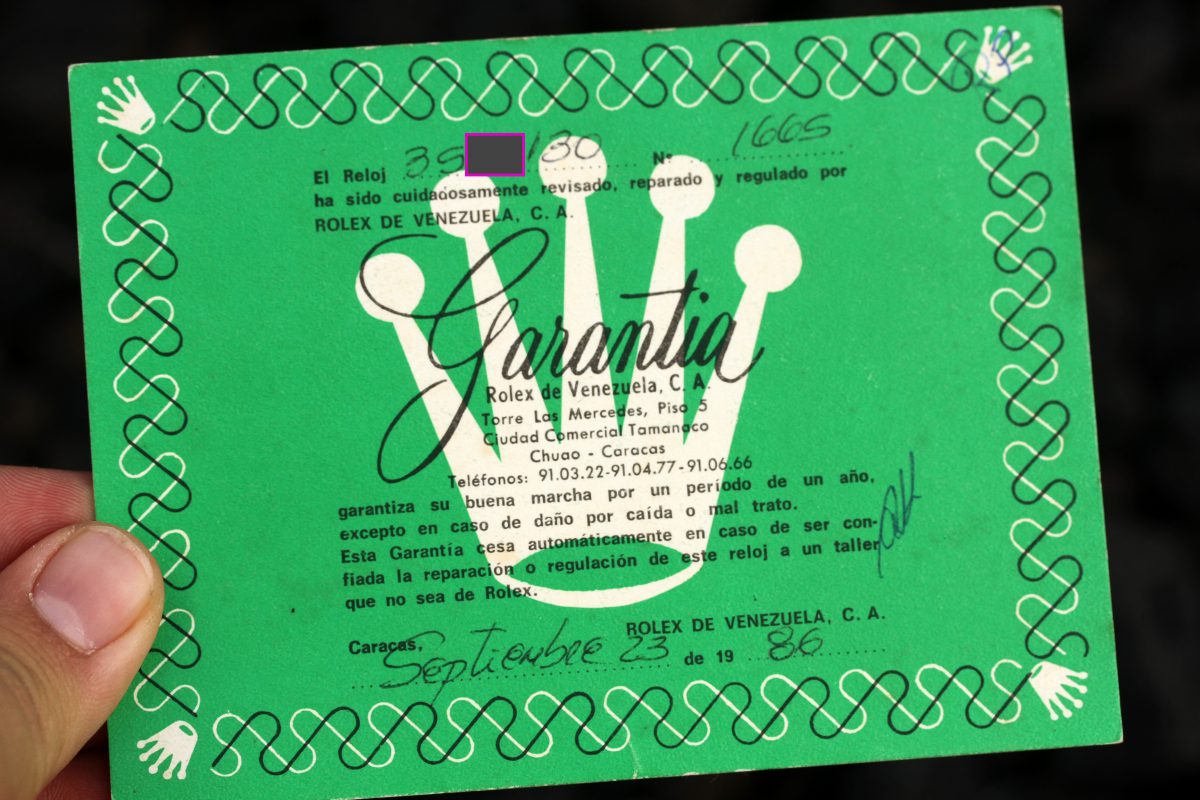 El Reloj 35 130 N: 1665
ha sido cuidadosamente revisado, reparado y regulado por
ROLEX DE VENEZUELA, C. A.
Garantia
Rolex de Venezuela, C. A.
Torre Las Mercedes, Piso 5
Ciudad Comercial Tamanaco
Chuao - Caracas
Teléfonos: 91.03.22-91.04.77-91.06.66
garantiza su buena marcha por un período de un año,
excepto en caso de daño por caída o mal trato.
Esta Garantía cesa automáticamente en caso de ser con-
fiada la reparación o regulación de este reloj a un taller
que no sea de Rolex.
ROLEX DE VENEZUELA, C. A.
Caracas, Septiembre 23 de 19 86